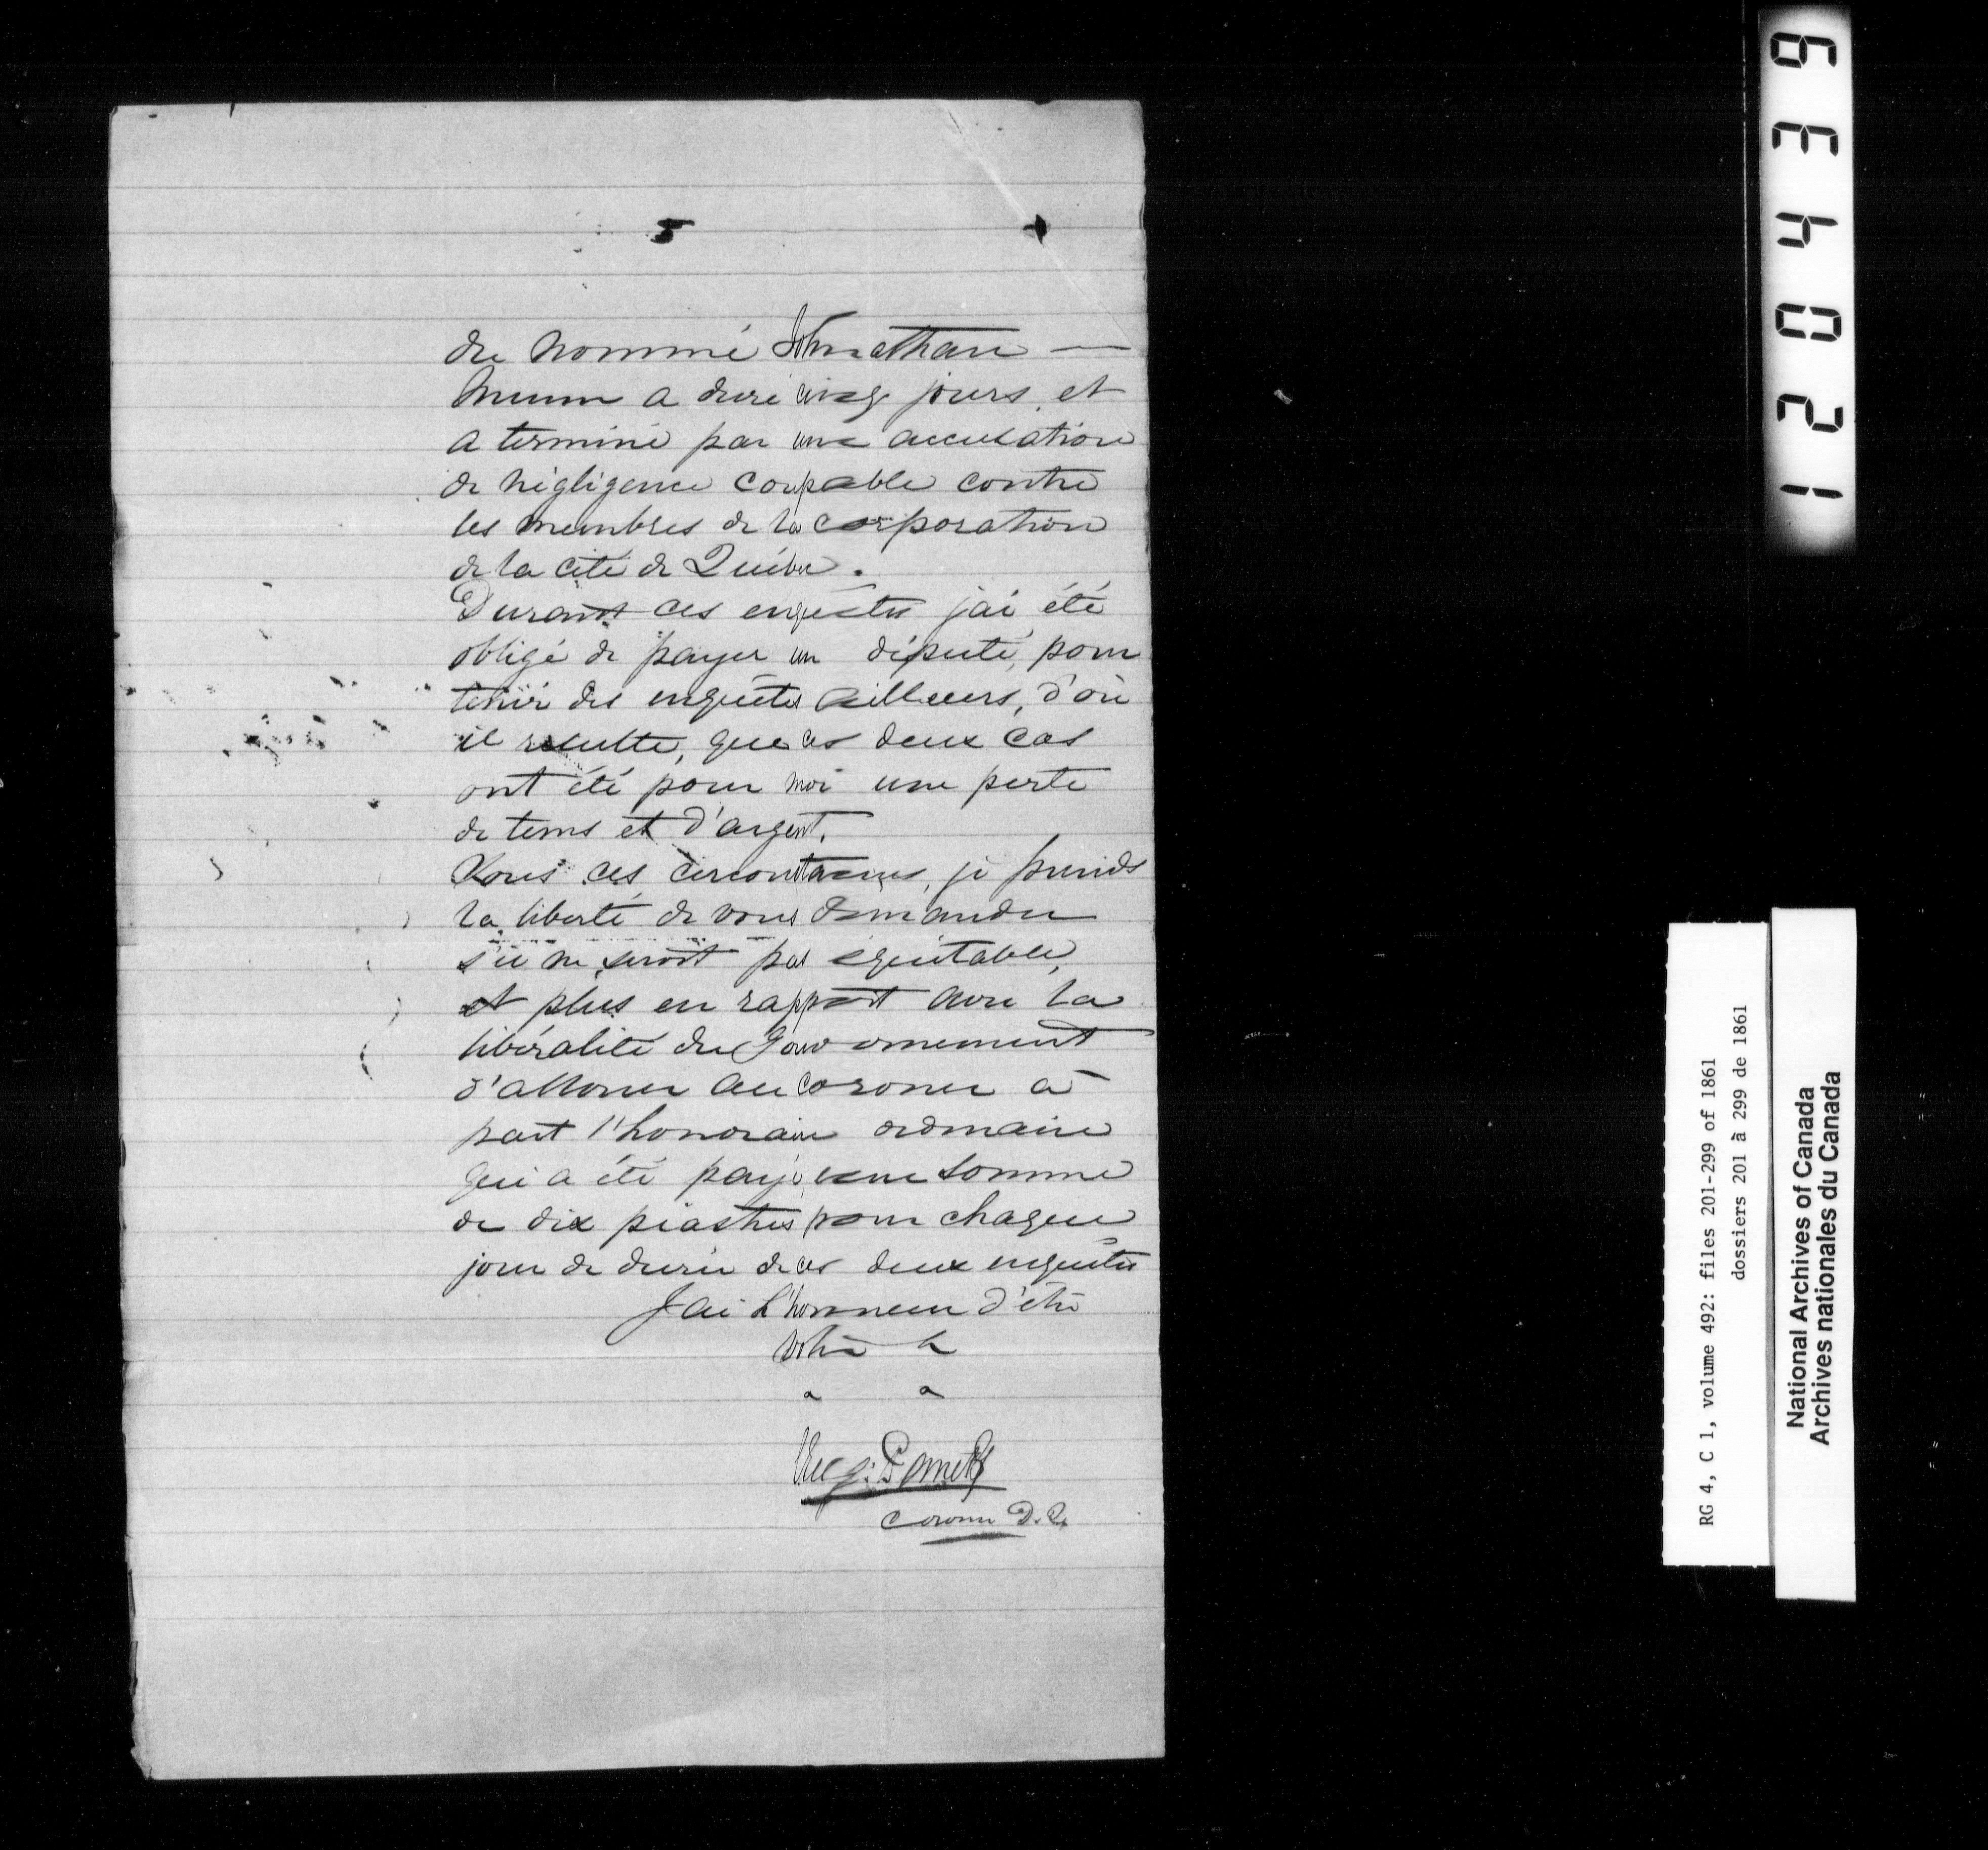 du nommé Johnathan —
Munn a duré cinq jours, et
a terminé par une accusation
de négligence coupable contre
les membres de la corporation
de la cité de Québec.
Durant ces enquêtes j'ai été
obligé de payer un député, pour
tenir des enquêtes ailleurs, d'où
il resulte, que ces deux cas
ont été pour moi une perte
de tems et d'argent.
Sous ces circonstances, je prends
la liberté de vous demander
s'il ne serait pas équitable,
et plus en rapport avec la
libéralité du Gouvernement
d'allouer au Coroner à
part l'honoraire ordinaire
qui a été payé, une somme
de dix piastres pour chaque
jour de durée de ces deux enquêtes
J'ai l'honneur d'être
Votre
Coroner D.Q.
120439
RG 4, C 1, volume 492: files 201-299 of 1861
dossiers 201 à 299 de 1861
National Archives of Canada
Archives nationales du Canada